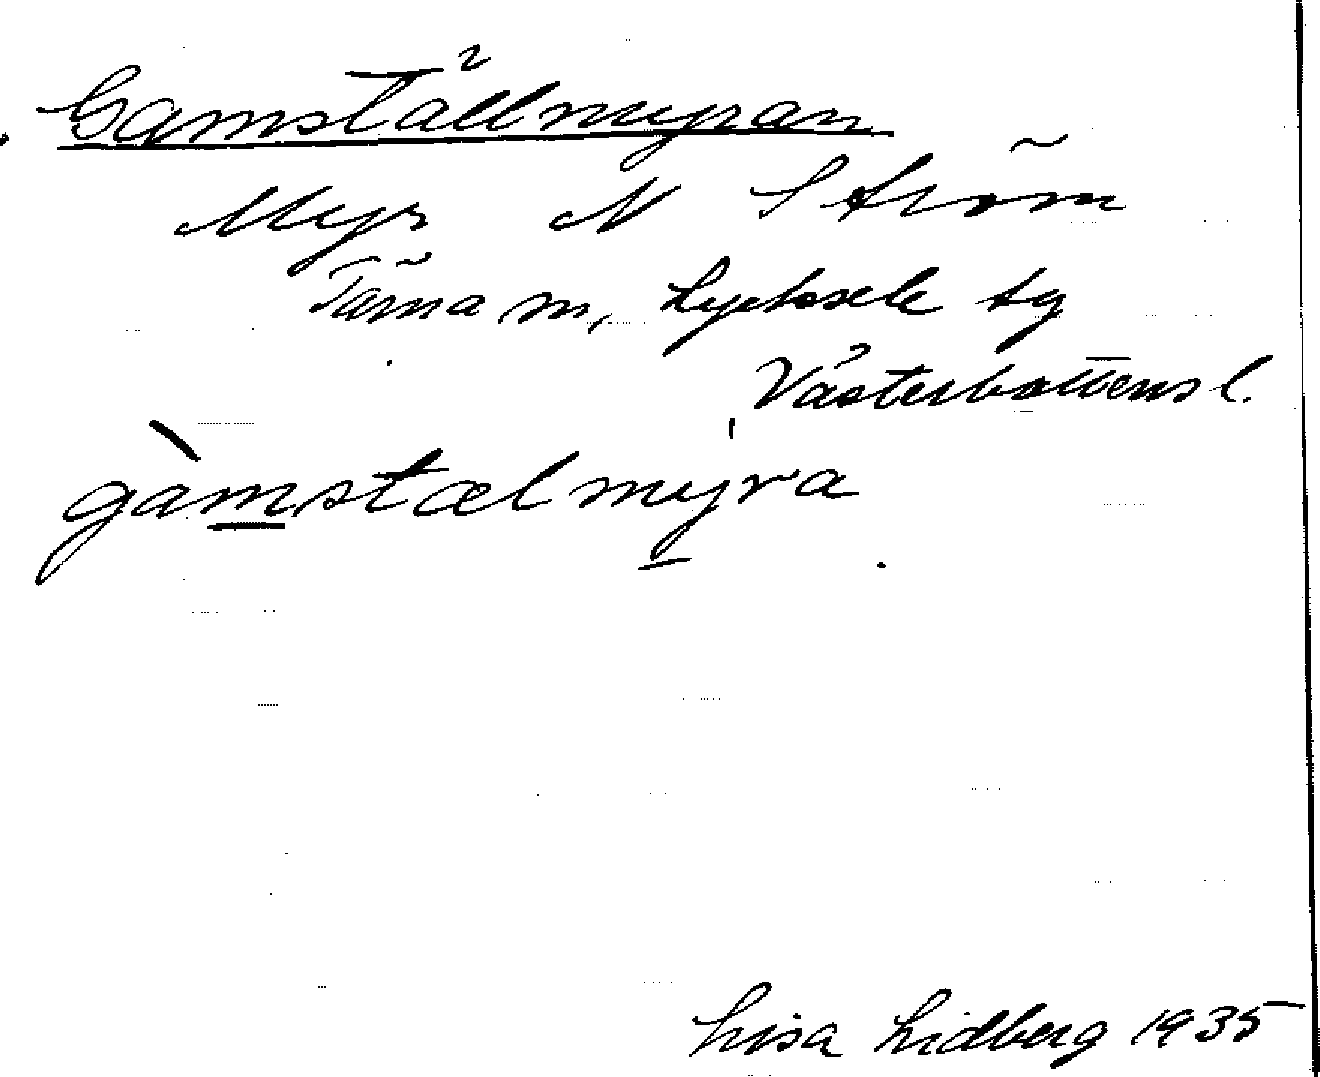 Gamställmyran
Myr N Ström
Tärna sn, Lycksele tg
Västerbottens l.
gàmstælmy̲ra
Lisa Lidberg 1935